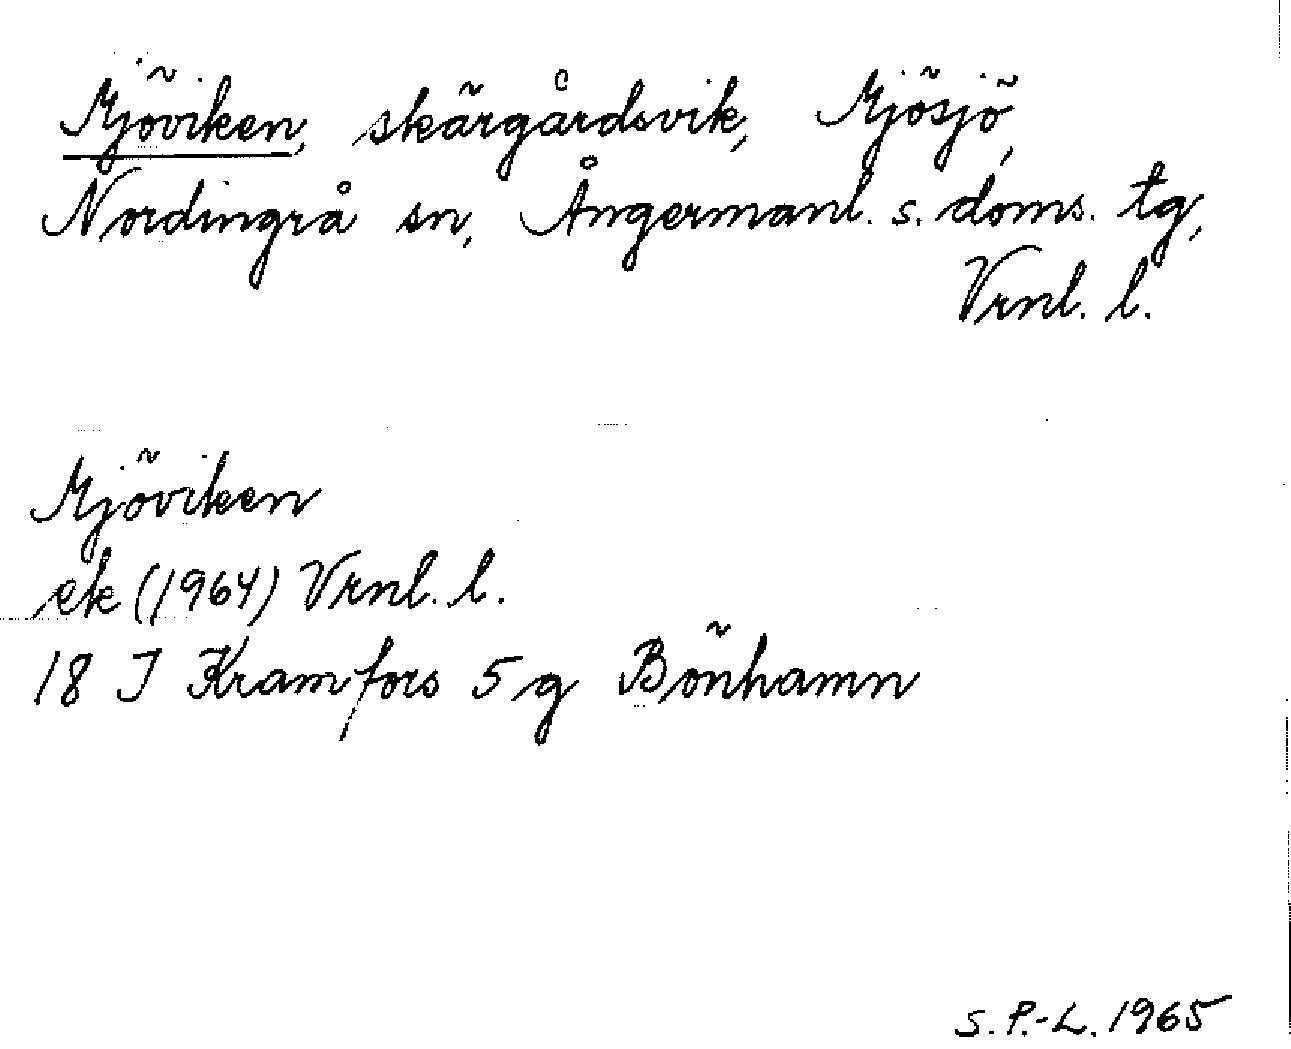 Mjöviken, skärgårdsvik, Mjösjö,
Nordingrå sn, Ångermanl. s. doms. tg,
Vrnl. l.
Mjöviken
ek (1964) Vrnl. l.
18 J Kramfors 5 g Bönhamn
S. P.-L. 1965